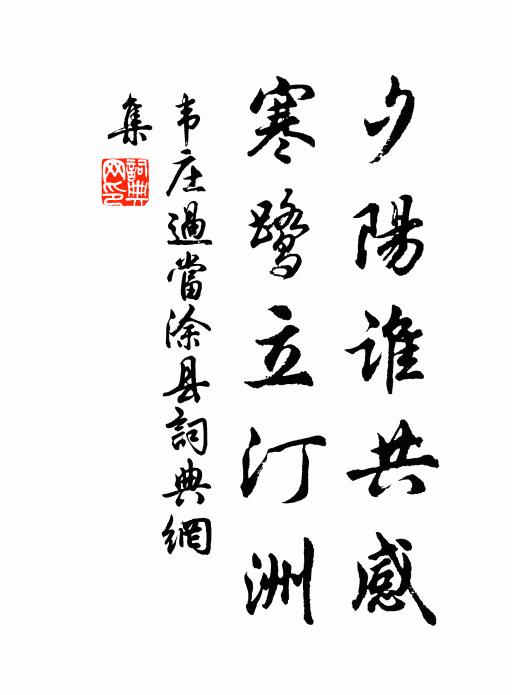 夕陽谁共感
寒鹭立汀洲
韦庄過當涂县詞典網
集
詞典网印